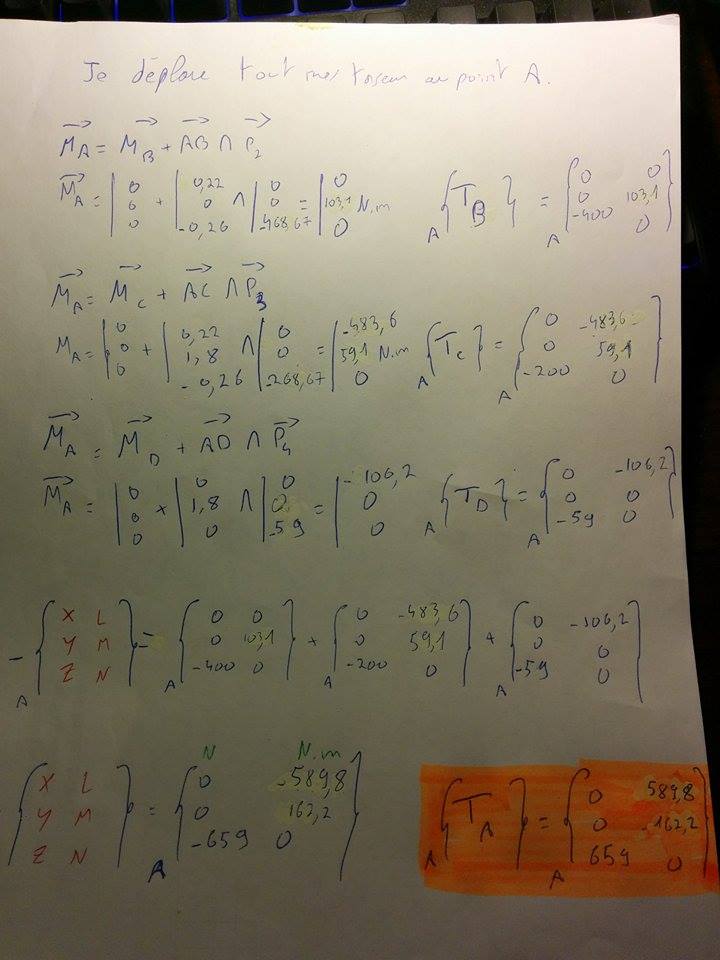 Je déplace tout mes torseur au point A.
M_A = M_B + AB ∧ P_2
M_A = | 0 0 0 + | 0,22 0 -0,26 ∧ | 0 0 -468,67 = | 0 103,1 N.m 0
A { T_B } = A { 0 0 0 103,1 -400 0 }
M_A = M_C + AC ∧ P_3
M_A = | 0 0 0 + | 0,22 1,8 -0,26 ∧ | 0 0 -268,67 = | -483,6 59,1 N.m 0
A { T_C } = A { 0 -483,6 0 59,1 -200 0 }
M_A = M_D + AD ∧ P_4
M_A = | 0 0 0 + | 0 1,8 0 ∧ | 0 0 -59 = | -106,2 0 0
A { T_D } = A { 0 -106,2 0 0 -59 0 }
- A { X L Y M Z N } = A { 0 0 0 103,1 -400 0 } + A { 0 -483,6 0 59,1 -200 0 } + A { 0 -106,2 0 0 -59 0 }
N N.m
- { X L Y M Z N } = A { 0 -589,8 0 162,2 -659 0 }
A { T_A } = A { 0 589,8 0 -162,2 659 0 }